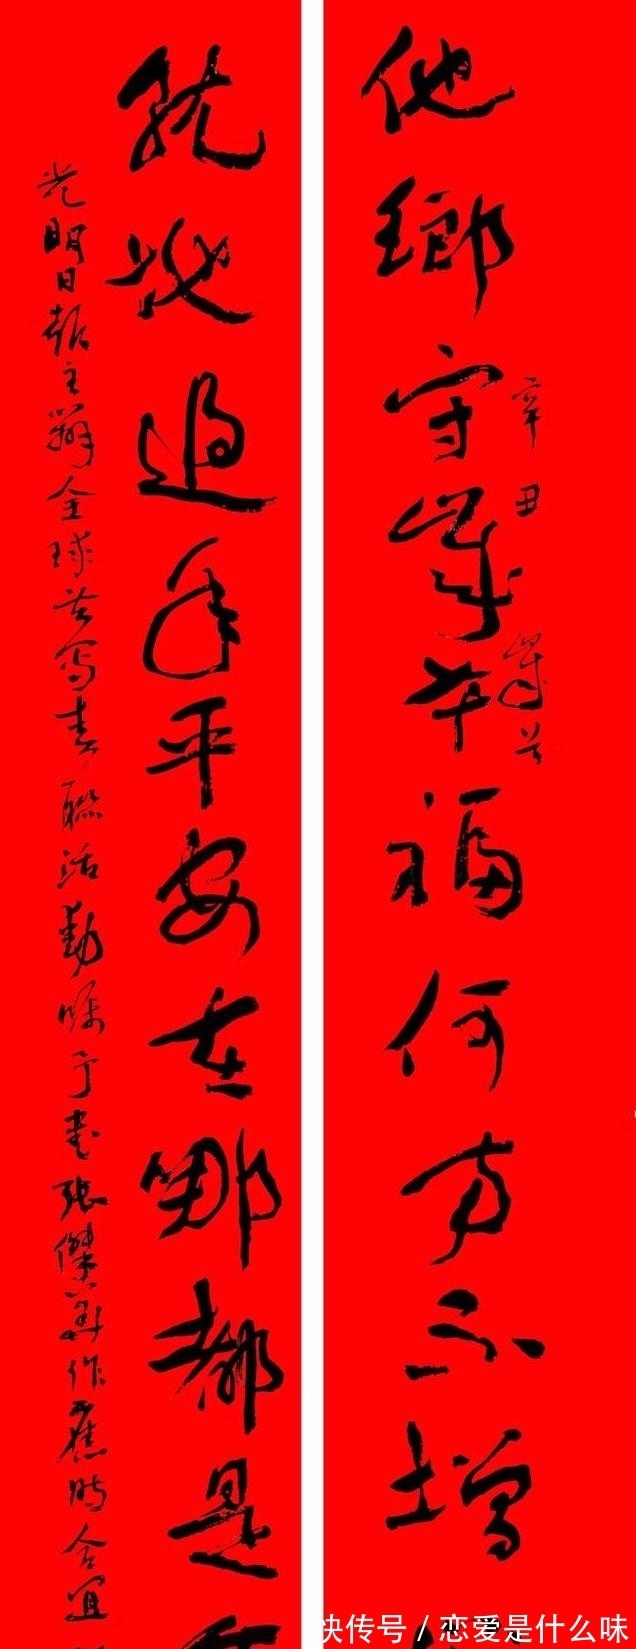 他鄉守歲幸福何方不增
辛丑
歲首
就地過年平安在哪都是
光明日報主辦全球共寫春聯活動囑予書張傑
作
時合宜
快传号 / 恋爱是什么味